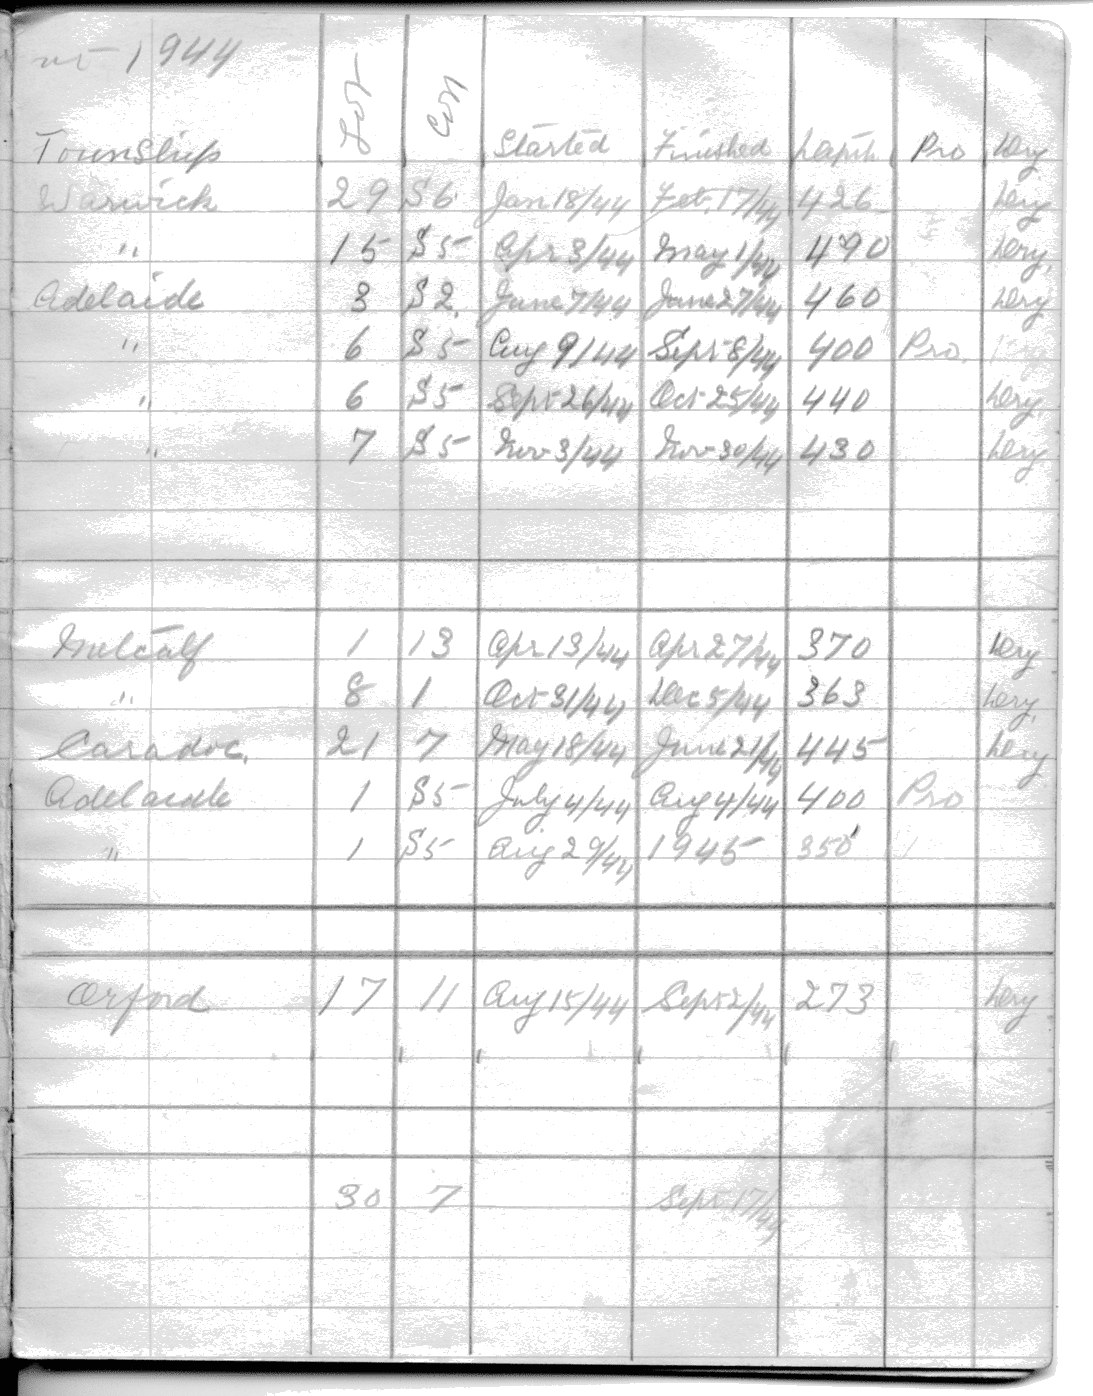 1944
Township Lot Con Started Finished Depth Pro Dry
Warwick 29 S6. Jan 18/44 Feb. 17/44 426 Dry
" 15 S5 Apr 3/44 May 1/44 490 Dry.
Adelaide 3 S2. June 7/44 June 27/44 460 Dry
" 6 S5 Aug 9/44 Sept 8/44 400 Pro. Dry
" 6 S5 Sept 26/44 Oct 25/44 440 Dry.
" 7 S5 Nov 3/44 Nov 30/44 430 Dry
Metcalf 1 13 Apr 13/44 Apr 27/44 370 Dry
" 8 1 Oct 31/44 Dec 5/44 363 Dry.
Caradoc. 21 7 May 18/44 June 21/44 445 Dry
Adelaide 1 S5 July 4/44 Aug 4/44 400 Pro
" 1 S5 Aug 29/44 1945 350'
Orford 17 11 Aug 15/44 Sept 2/44 273 Dry
30 7 Sept 17/44